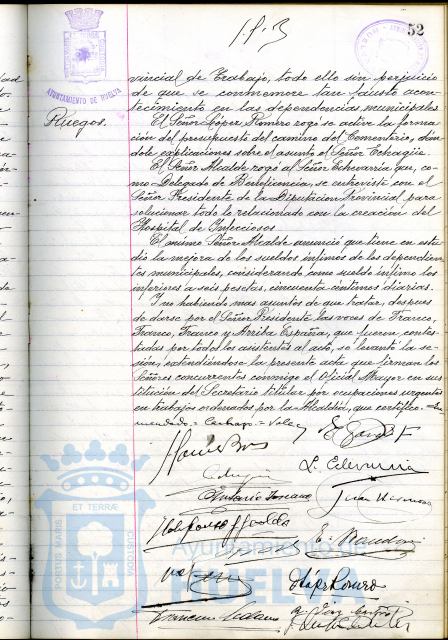 52
AYUNTAMIENTO DE HUELVA
vincial de Trabajo, todo ello sin perjuicio
de que se conmemore tan fausto acon-
tecimiento en las dependencias municipales
Ruegos.
El Señor López Romero rogó se active la forma-
ción del presupuesto del camino del Cementerio, dán-
dole explicaciones sobre el asunto el Señor Echagüe
El Señor Alcalde rogó al Señor Echevarría que, co-
mo Delegado de Beneficencia, se entreviste con el
Señor Presidente de la Diputación Provincial para
solucionar todo lo relacionado con la creación del
Hospital de Infecciosos
El mismo Señor Alcalde anunció que tiene en estu-
dio la mejora de los sueldos ínfimos de los dependien-
tes municipales, considerando como sueldo ínfimo los
inferiores a seis pesetas, cincuenta céntimos diarias.
Y no habiendo mas asuntos de que tratar, despues
de darse por el Señor Presidente las voces de Franco,
Franco, Franco y Arriba España, que fueron contes-
tadas por todos los asistentes al acto, se levantó la se-
sión, extendiéndose la presente acta que firman los
Señores concurrentes conmigo el Oficial Mayor en sus-
titución del Secretario titular por ocupaciones urgentes
en trabajos ordenados por la Alcaldía, que certifico = En-
mendado = = Vale
L. Echevarria
Antonio
Juan
E.
López Romero
Francisco
PORTUS MARIS ET TERRAE CUSTODIA
Ayuntamiento de
HUELVA